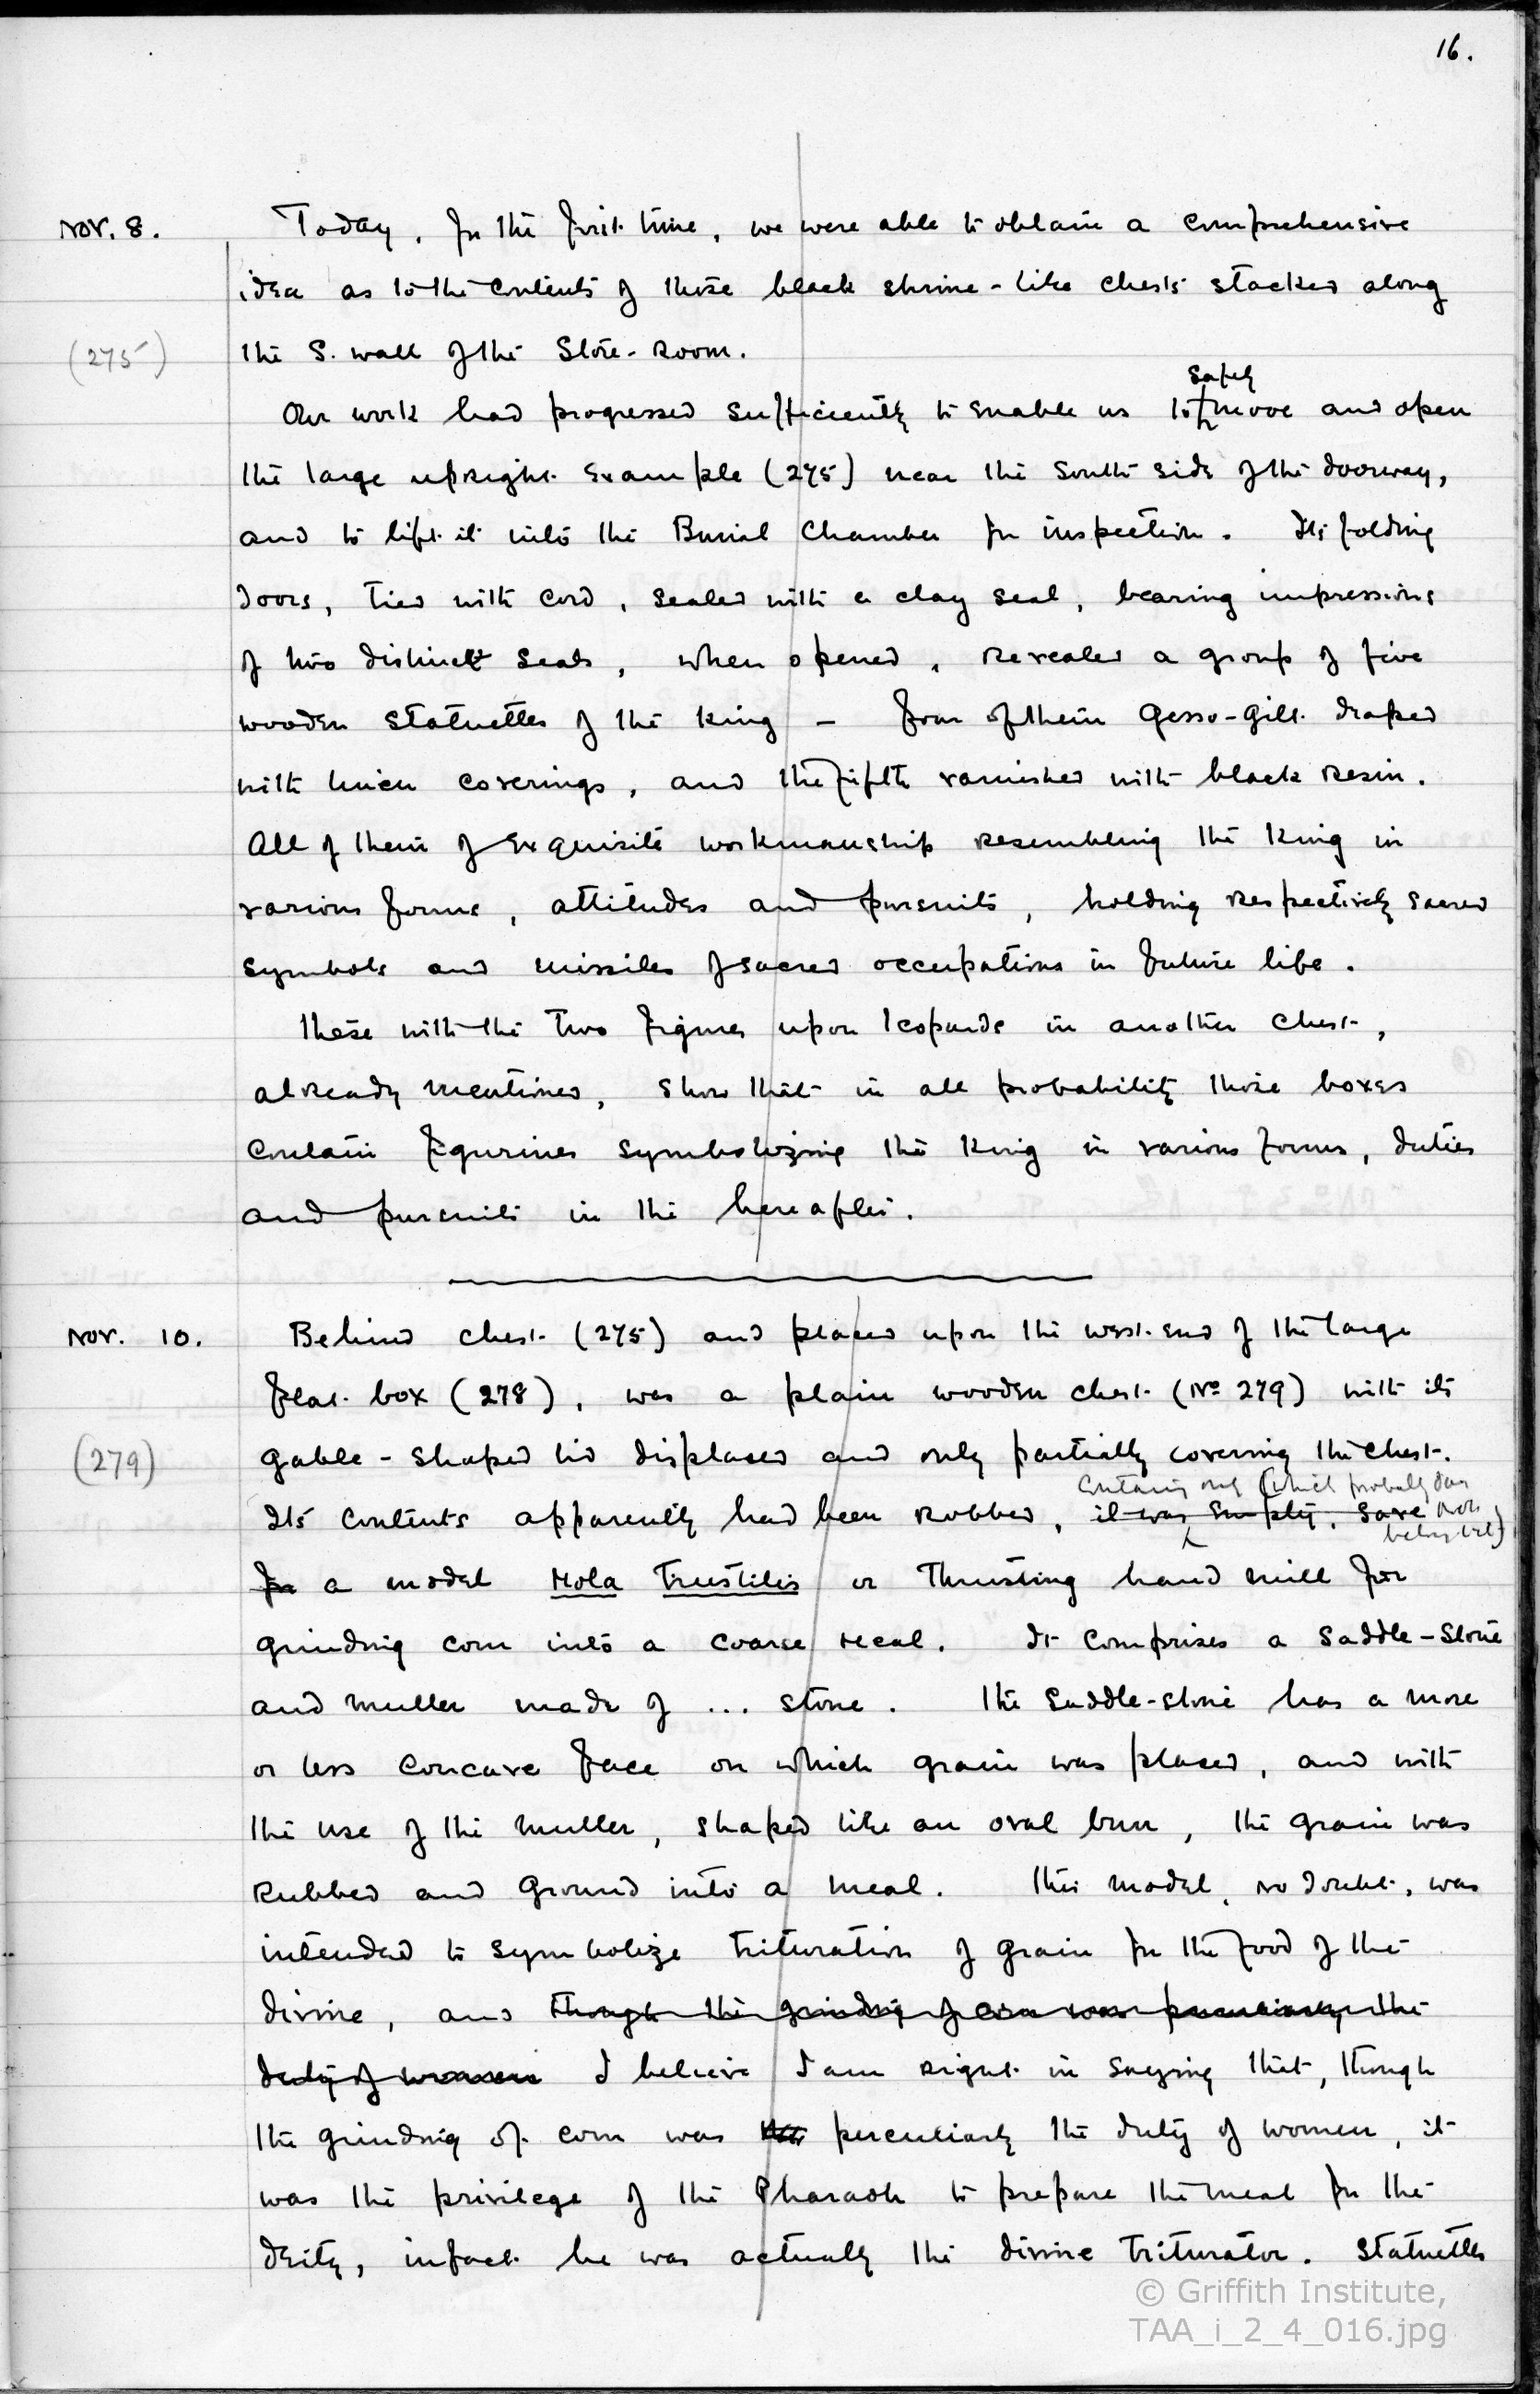 16.
Nov. 8. Today, for the first time, we were able to obtain a comprehensive
idea as to the contents of those black shrine-like chests stacked along
(275) the S. wall of the Store-Room.
safely
Our work had progressed sufficiently to enable us to move and open
the large upright example (275) near the south side of the doorway,
and to lift it into the Burial Chamber for inspection. Its folding
doors, tied with cord, sealed with a clay seal, bearing impressions
of two distinct seals, when opened, revealed a group of five
wooden statuettes of the king — four of them gesso-gilt draped
with linen coverings, and the fifth varnished with black resin.
All of them of exquisite workmanship resembling the King in
various forms, attitudes and pursuits, holding respectively sacred
symbols and missiles of sacred occupations in future life.
These with the two figures upon leopards in another chest,
already mentioned, show that in all probability those boxes
contain figurines symbolizing the King in various forms, duties
and pursuits in the hereafter.
Nov. 10. Behind chest (275) and placed upon the west end of the large
flat box (278), was a plain wooden chest (No 279) with its
(279) gable-shaped lid displaced and only partially covering the chest.
containing only (which probably does not
Its contents apparently had been robbed, it was empty, save
belong to it)
for a model Mola trustilis or Thrusting hand mill for
grinding corn into a coarse meal. It comprises a saddle-stone
and muller made of ... stone. The saddle-stone has a more
or less concave face on which grain was placed, and with
the use of the muller, shaped like an oval bun, the grain was
rubbed and ground into a meal. This model, no doubt, was
intended to symbolize trituration of grain for the food of the
divine, and though the grinding of corn was peculiarly the
duty of women I believe I am right in saying that, though
the grinding of corn was peculiarly the duty of women, it
was the privilege of the Pharaoh to prepare the meal for the
deity, in fact he was actually the divine triturator. Statuettes
© Griffith Institute,
TAA_i_2_4_016.jpg